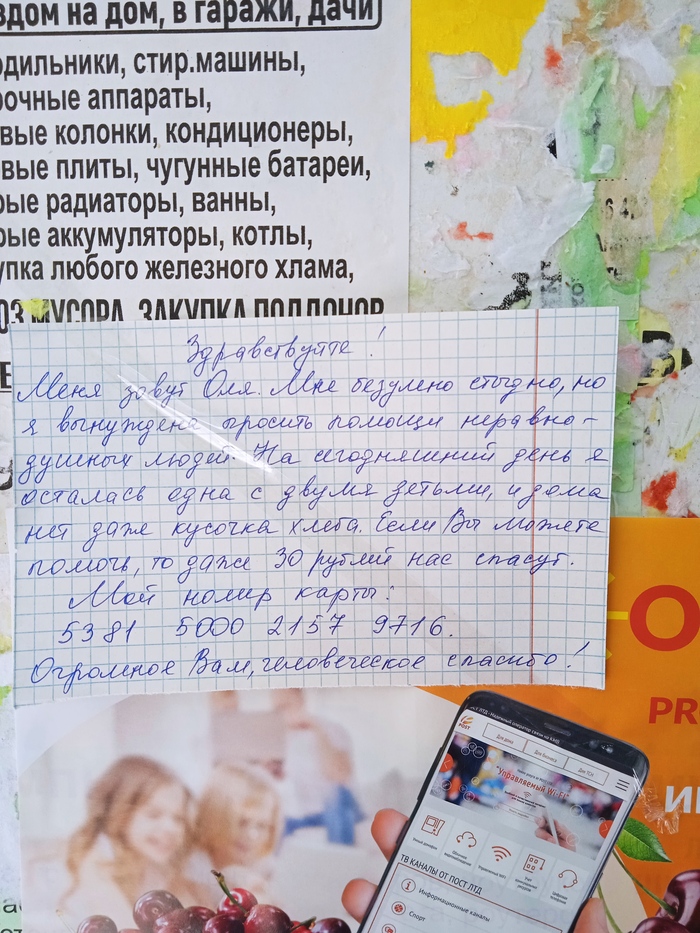 здом на дом, в гаражи, дачи
одильники, стир.машины,
рочные аппараты,
вые колонки, кондиционеры,
вые плиты, чугунные батареи,
рые радиаторы, ванны,
рые аккумуляторы, котлы,
упка любого железного хлама,
ОЗ МУСОРА, ЗАКУПКА ПОДДОНОВ
Здравствуйте!
Меня зовут Оля. Мне безумно стыдно, но
я вынуждена просить помощи неравно-
душных людей. На сегодняшний день я
осталась одна с двумя детьми, и дома
нет даже кусочка хлеба. Если Вы можете
помочь, то даже 30 рублей нас спасут.
Мой номер карты:
5381 5000 2157 9716.
Огромное Вам, человеческое спасибо!
PR
POST
Для дома
Для бизнеса
Для ТСЖ
"Управляемый Wi-Fi"
ТВ КАНАЛЫ ОТ ПОСТ ЛТД
Информационные каналы
Спорт